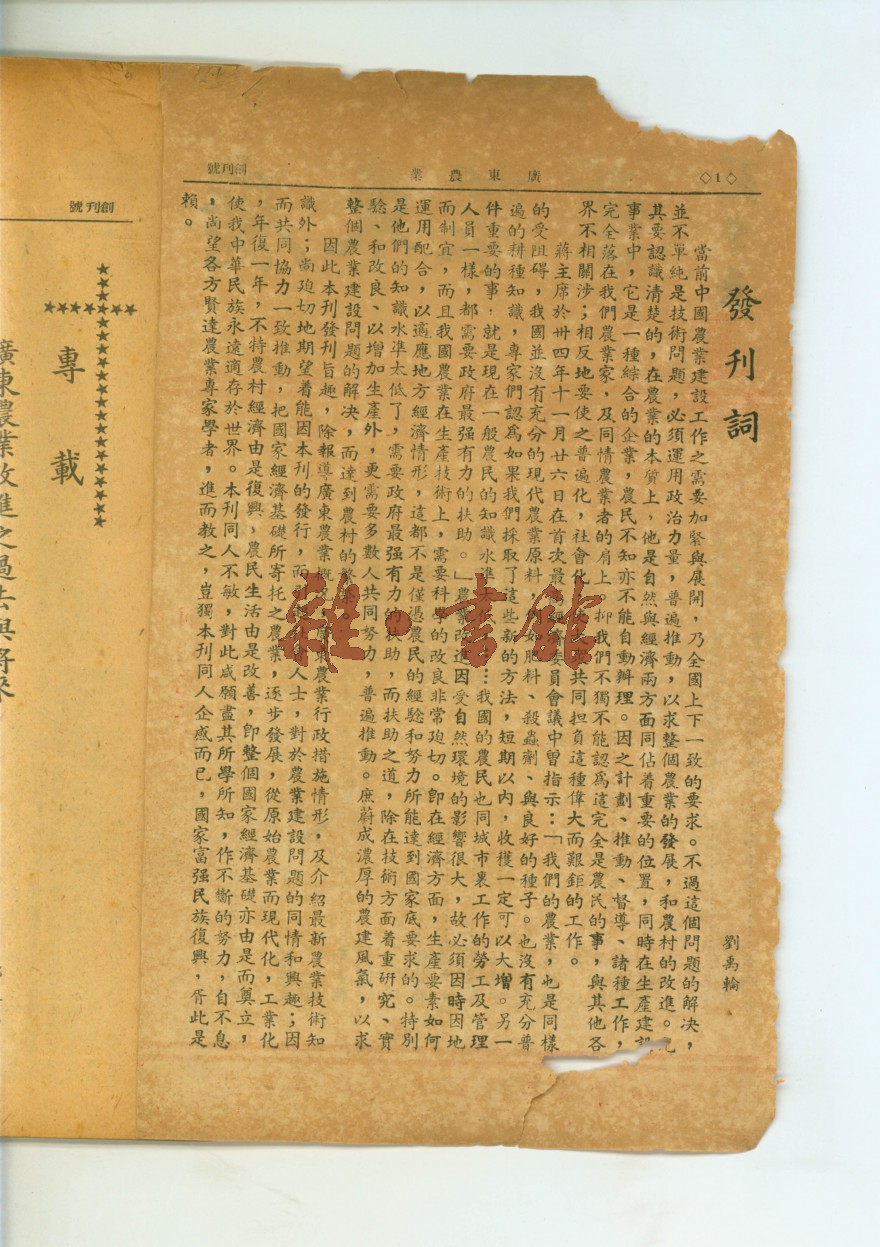 ◇1◇
廣東農業
創刊號
發刊詞
劉禹輪
當前中國農業建設工作之需要加緊與展開，乃全國上下一致的要求。不過這個問題的解決，
並不單純是技術問題，必須運用政治力量，普遍推動，以求整個農業的發展，和農村的改進。
其要認識清楚的，在農業的本質上，他是自然與經濟兩方面同佔着重要的位置，同時在生產建設
事業中，它是一種綜合的企業，農民不知亦不能自動辦理。因之計劃、推動、督導、諸種工作，
完全落在我們農業家，及同情農業者的肩上。抑我們不獨不能認爲這完全是農民的事，與其他各
界不相關涉；相反地要使之普遍化，社會化，使大家共同担負這種偉大而艱鉅的工作。
蔣主席於卅四年十一月廿六日在首次最高經濟委員會議中曾指示：「我們的農業，也是同樣
的受阻碍，我國並沒有充分的現代農業原料，例如肥料、殺蟲劑、與良好的種子。也沒有充分普
遍的耕種知識，專家們認爲如果我們採取了這些新的方法，短期以內，收獲一定可以大增。另一
件重要的事，就是現在一般農民的知識水準太低了…我國的農民也同城市裏工作的勞工及管理
人員一樣，都需要政府最强有力的扶助。」農業改進因受自然環境的影響很大，故必須因時因地
而制宜，而且我國農業在生產技術上，需要科學的改良非常廹切。卽在經濟方面，生產要素如何
運用配合，以適應地方經濟情形，這都不是僅憑農民的經驗和努力所能達到國家底要求的。特別
是他們的知識水準太低了，需要政府最强有力的扶助，而扶助之道，除在技術方面着重研究、實
驗、和改良、以增加生產外，更需要多數人共同努力，普遍推動。庶蔚成濃厚的農建風氣，以求
整個農業建設問題的解決，而達到農村的繁榮。
因此本刊發刊旨趣，除報導廣東農業概况，廣東農業行政措施情形，及介紹最新農業技術知
識外；尚廹切地期望着能因本刊的發行，而引起社會人士，對於農業建設問題的同情和興趣；因
而共同協力一致推動，把國家經濟基礎所寄托之農業，逐步發展，從原始農業而現代化，工業化
，年復一年，不特農村經濟由是復興，農民生活由是改善，卽整個國家經濟基礎亦由是而奠立，
使我中華民族永遠適存於世界。本刊同人不敏，對此咸願盡其所學所知，作不斷的努力，自不息
，尚望各方賢達農業專家學者，進而教之，豈獨本刊同人企感而已，國家富强民族復興，胥此是
賴。
雜·書館
創刊號
專載
廣東農業改進之過去與將來